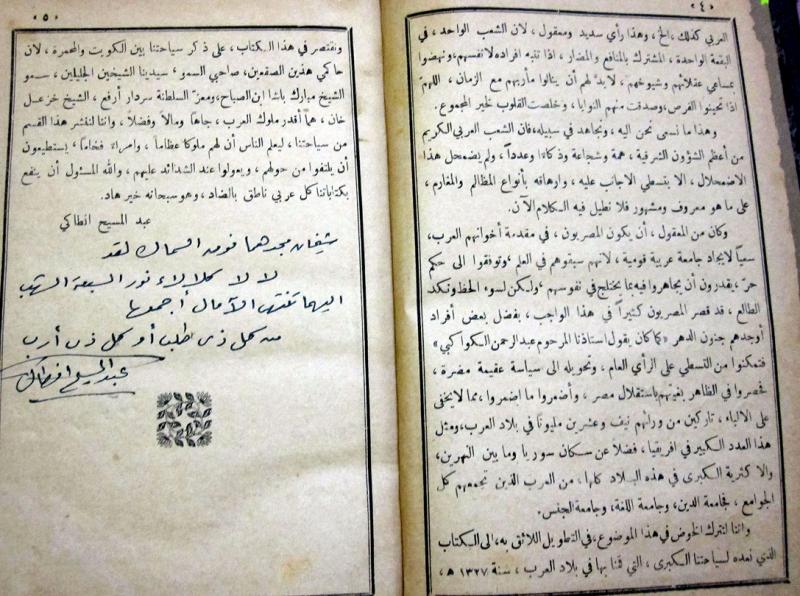 «٤»
العربي كذلك، الخ، وهذا رأي سديد ومعقول، لان الشعب الواحد، في
البقعة الواحدة، المشترك بالمنافع والمضار، اذا تنبه افراده لانفسهم، ونهضوا
بمساعي عقلائهم وشيوخهم، لا بدّ لهم أن ينالوا مأربهم مع الزمان، اللهمّ
اذا تحينوا الفرص، وصدقت منهم النوايا، وخلصت القلوب لخير المجموع.
وهذا ما نسعى نحن اليه، ونجاهد في سبيله، فان الشعب العربي الكريم
من أعظم الشؤون الشرقية، همة وشجاعة وذكاءً وعدداً، ولم يضمحل هذا
الاضمحلال، الا بتسلطي الاجانب عليه، وارهاقه بأنواع المظالم والمغارم،
على ما هو معروف ومشهور فلا نطيل فيه الكلام الآن.
وكان من المعقول، أن يكون المصريون، في مقدمة أخوانهم العرب،
سعياً لايجاد جامعة عربية قومية، لانهم سبقوهم في العلم، وتوفقوا الى حكم
حرّ، يقدرون أن يجاهروا فيه بما يختلج في نفوسهم، ولكن لسوء الحظ ونكد
الطالع، قد قصر المصريون كثيراً في هذا الواجب، بفضل بعض أفراد
أوجدهم جنون الدهر «كما كان يقول استاذنا المرحوم عبد الرحمن الكواكبي»
فتمكنوا من التسطي على الرأي العام، وتحويله الى سياسة عقيمة مضرة،
فحصروا في الظاهر بغيتهم باستقلال مصر، وأضمروا ما اضمروا، مما لا يخفى
على الالباء، تاركين من ورائهم نيف وعشرين مليوناً في بلاد العرب، ومثل
هذا العدد الكبير في افريقيا، فضلاً عن سكان سوريا وما بين النهرين،
والاكثرية الكبرى في هذه البلاد كلها، من العرب الذين تجمعهم كل
الجوامع، فجامعة الدين، وجامعة اللغة، وجامعة الجنس.
واننا لنترك الخوض في هذا الموضوع، في التطويل اللائق به، الى الكتاب
الذي نعده لسياحتنا الكبرى، التي قمنا بها في بلاد العرب، سنة ١٣٢٧ هـ،
«٥»
ونقتصر في هذا الكتاب، على ذكر سياحتنا بين الكويت والمحمرة، لان
حاكمي هذين الصقعين، صاحبي السمو، سيدينا الشيخين الجليلين، سمو
الشيخ مبارك باشا ابن الصباح، ومعزّ السلطنة سردار أرفع، الشيخ خزعل
خان، هما أقدر ملوك العرب، جاهاً ومالاً وفضلاً، واننا لننشر هذا القسم
من سياحتنا، ليعلم الناس أن لهم ملوكا عظاماً، وامراء فخاماً، يستطيعون
أن يلتفوا من حولهم، ويعولوا عند الشدائد عليهم، والله المسئول أن ينفع
بكتاباتنا كل عربي ناطق بالضاد، وهو سبحانه خير هاد.
عبد المسيح انطاكي
شيخان مجدهما فوق السماك لقد
لالا كلالاء نور السبعة الشهب
اليهما تنتهي الآمال أجمعها
من كل ذي طلب أو كل ذي أرب
عبد المسيح انطاكي